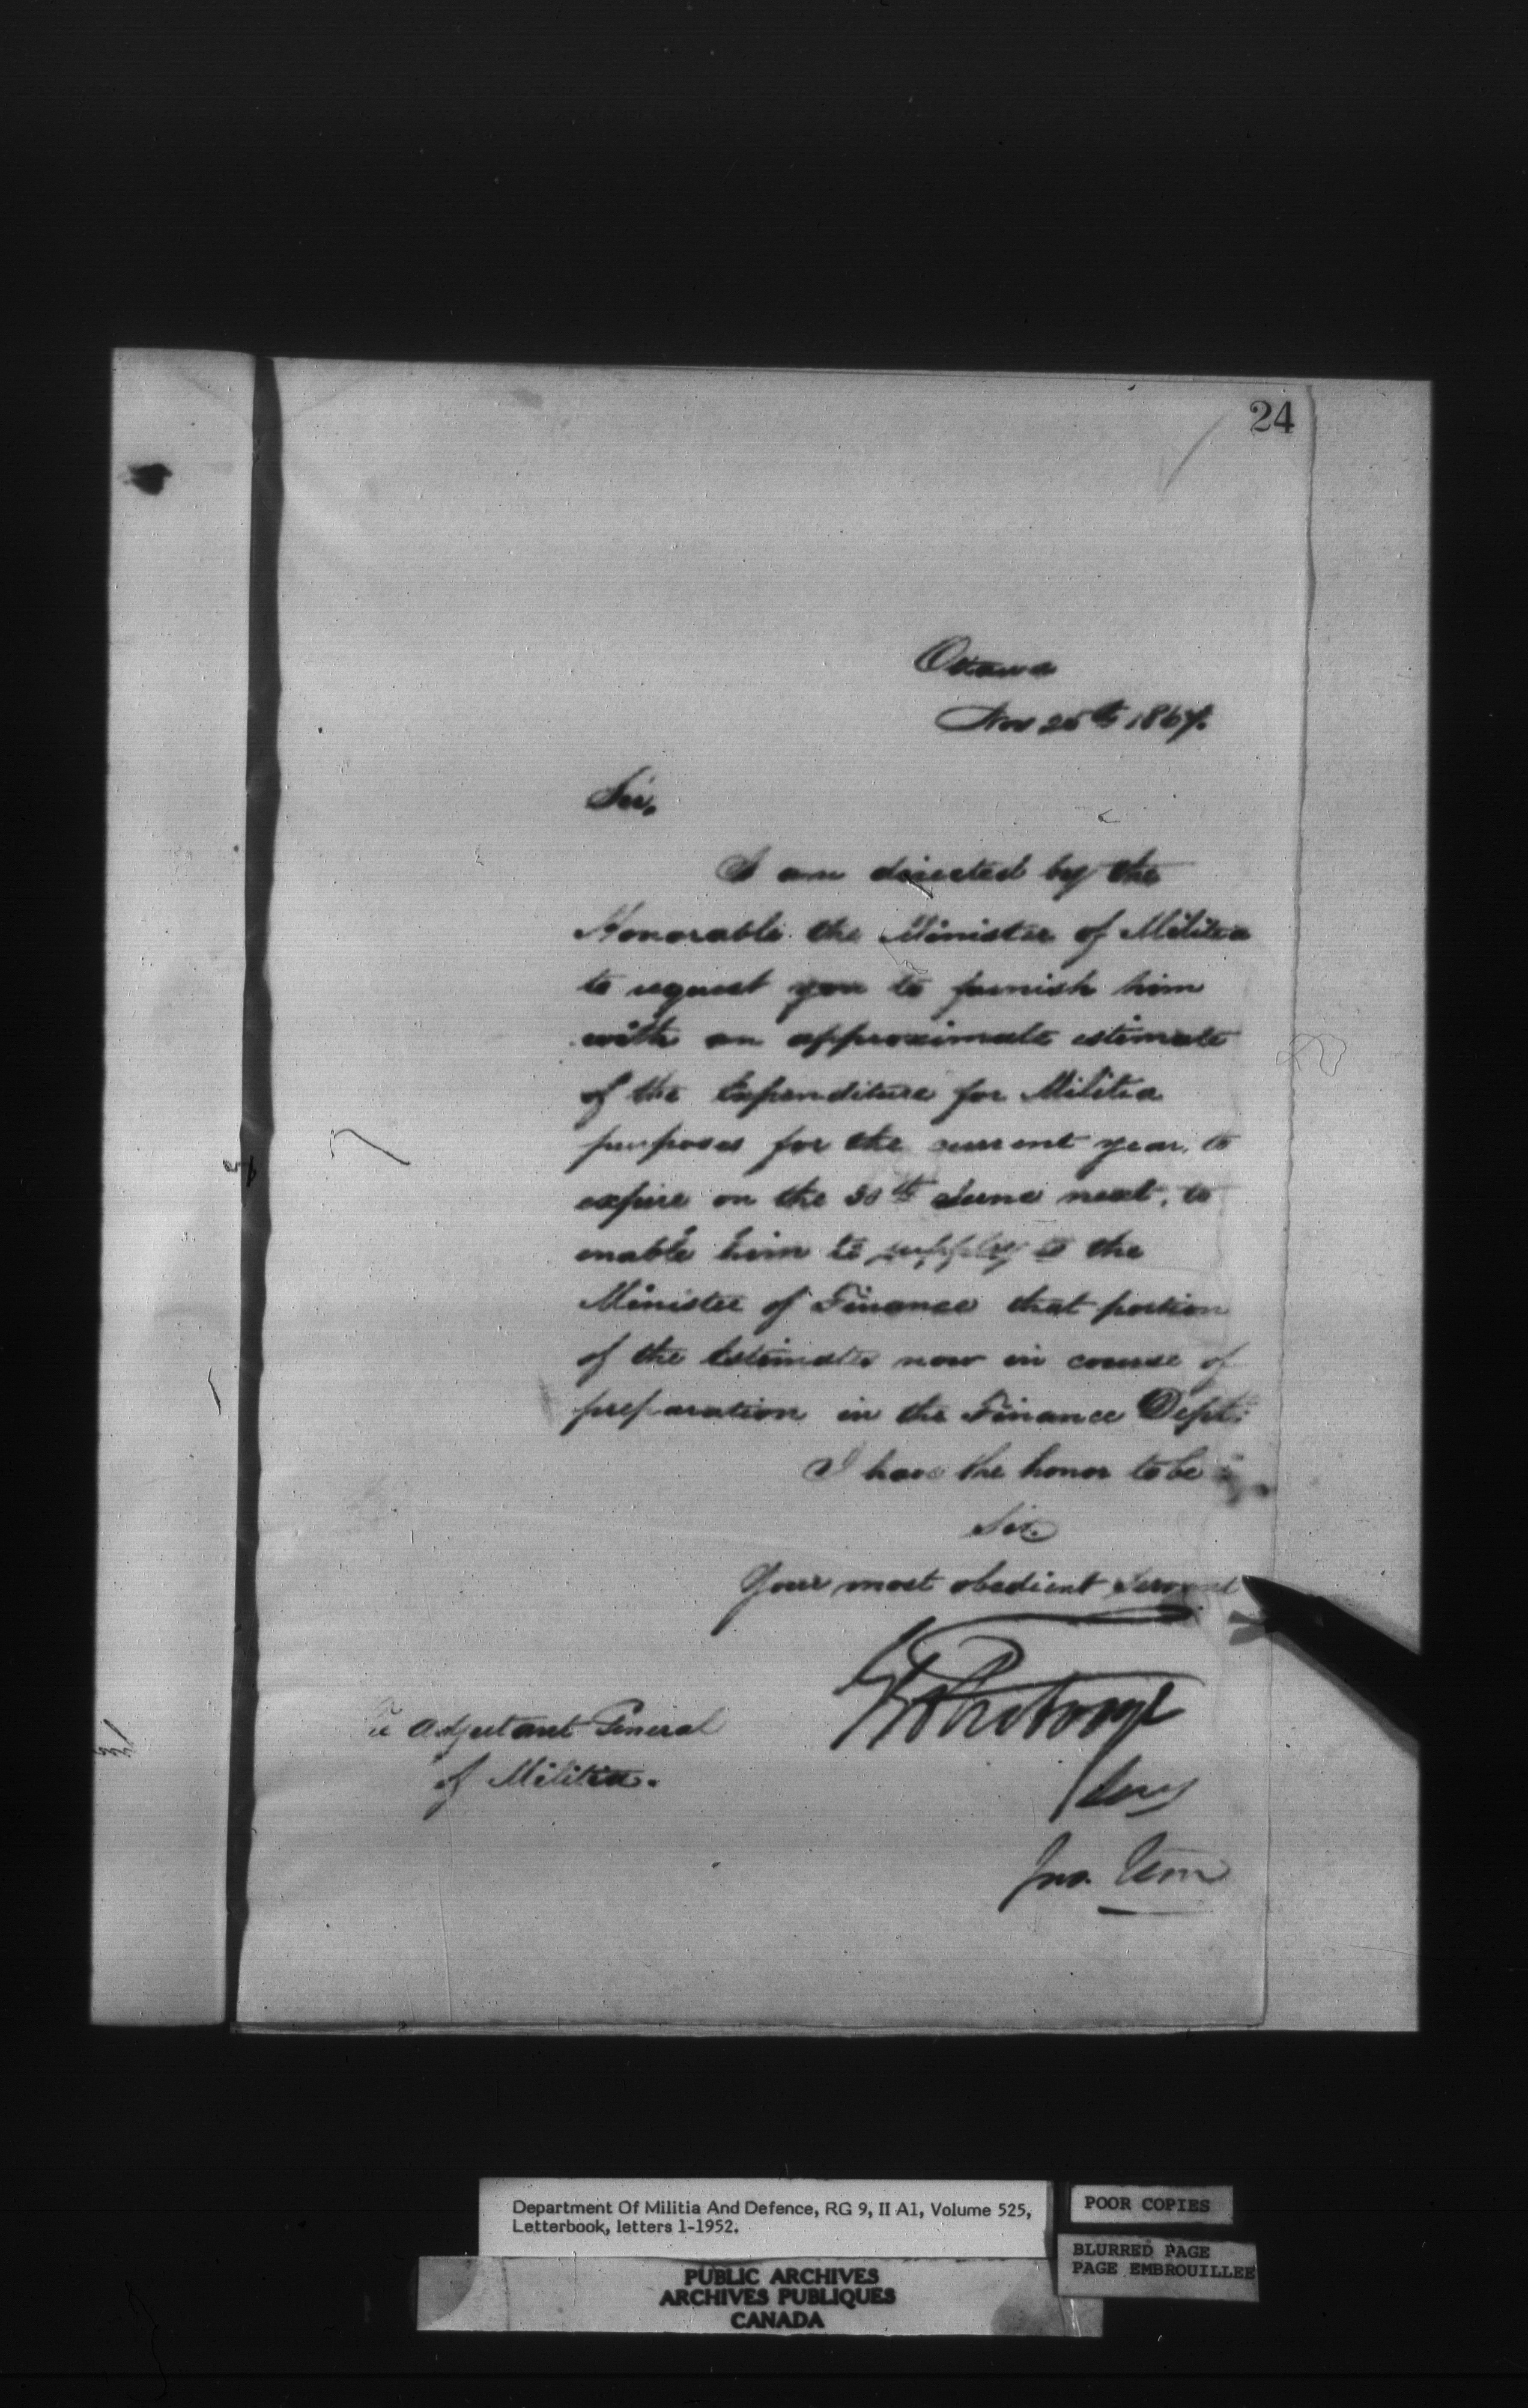 24
Ottawa
Nov 25th 1867.
Sir,
I am directed by the
Honorable the Minister of Militia
to request you to furnish him
with an approximate estimate
of the Expenditure for Militia
purposes for the current year, to
expire on the 30th June next, to
enable him to supply to the
Minister of Finance that portion
of the Estimates now in course of
preparation in the Finance Dept:
I have the honor to be
Sir
Your most obedient Servant
Adjutant General
of Militia.
Department Of Militia And Defence, RG 9, II A1, Volume 525,
Letterbook, letters 1-1952.
POOR COPIES
BLURRED PAGE
PAGE EMBROUILLEE
PUBLIC ARCHIVES
ARCHIVES PUBLIQUES
CANADA